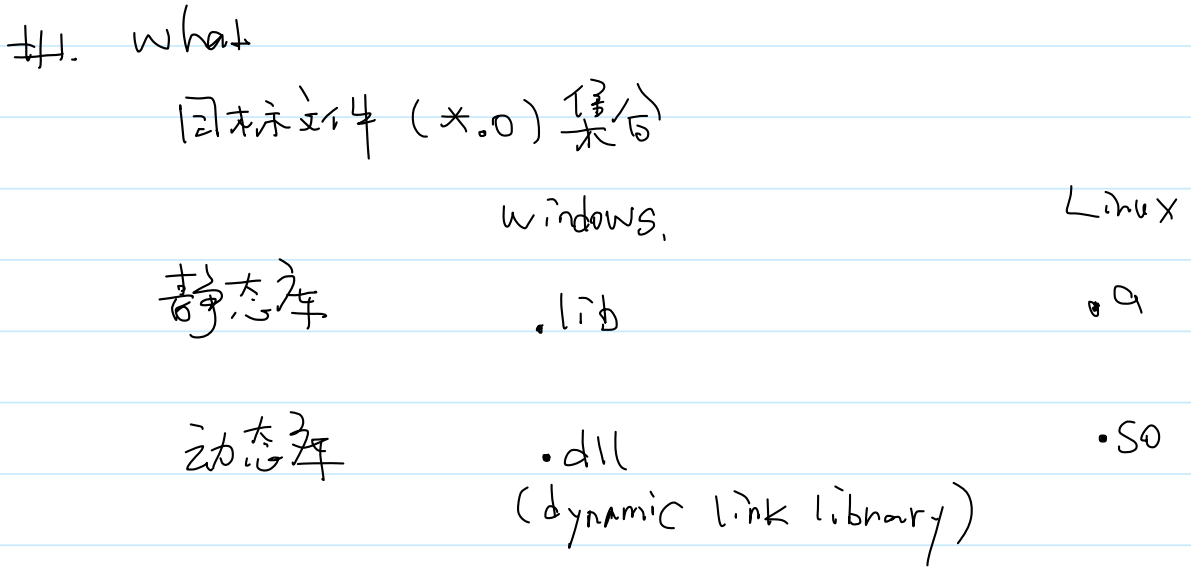 #1. what
目标文件 (*.o) 集合
windows. Linux
静态库 .lib .a
动态库 .dll .so
(dynamic link library)